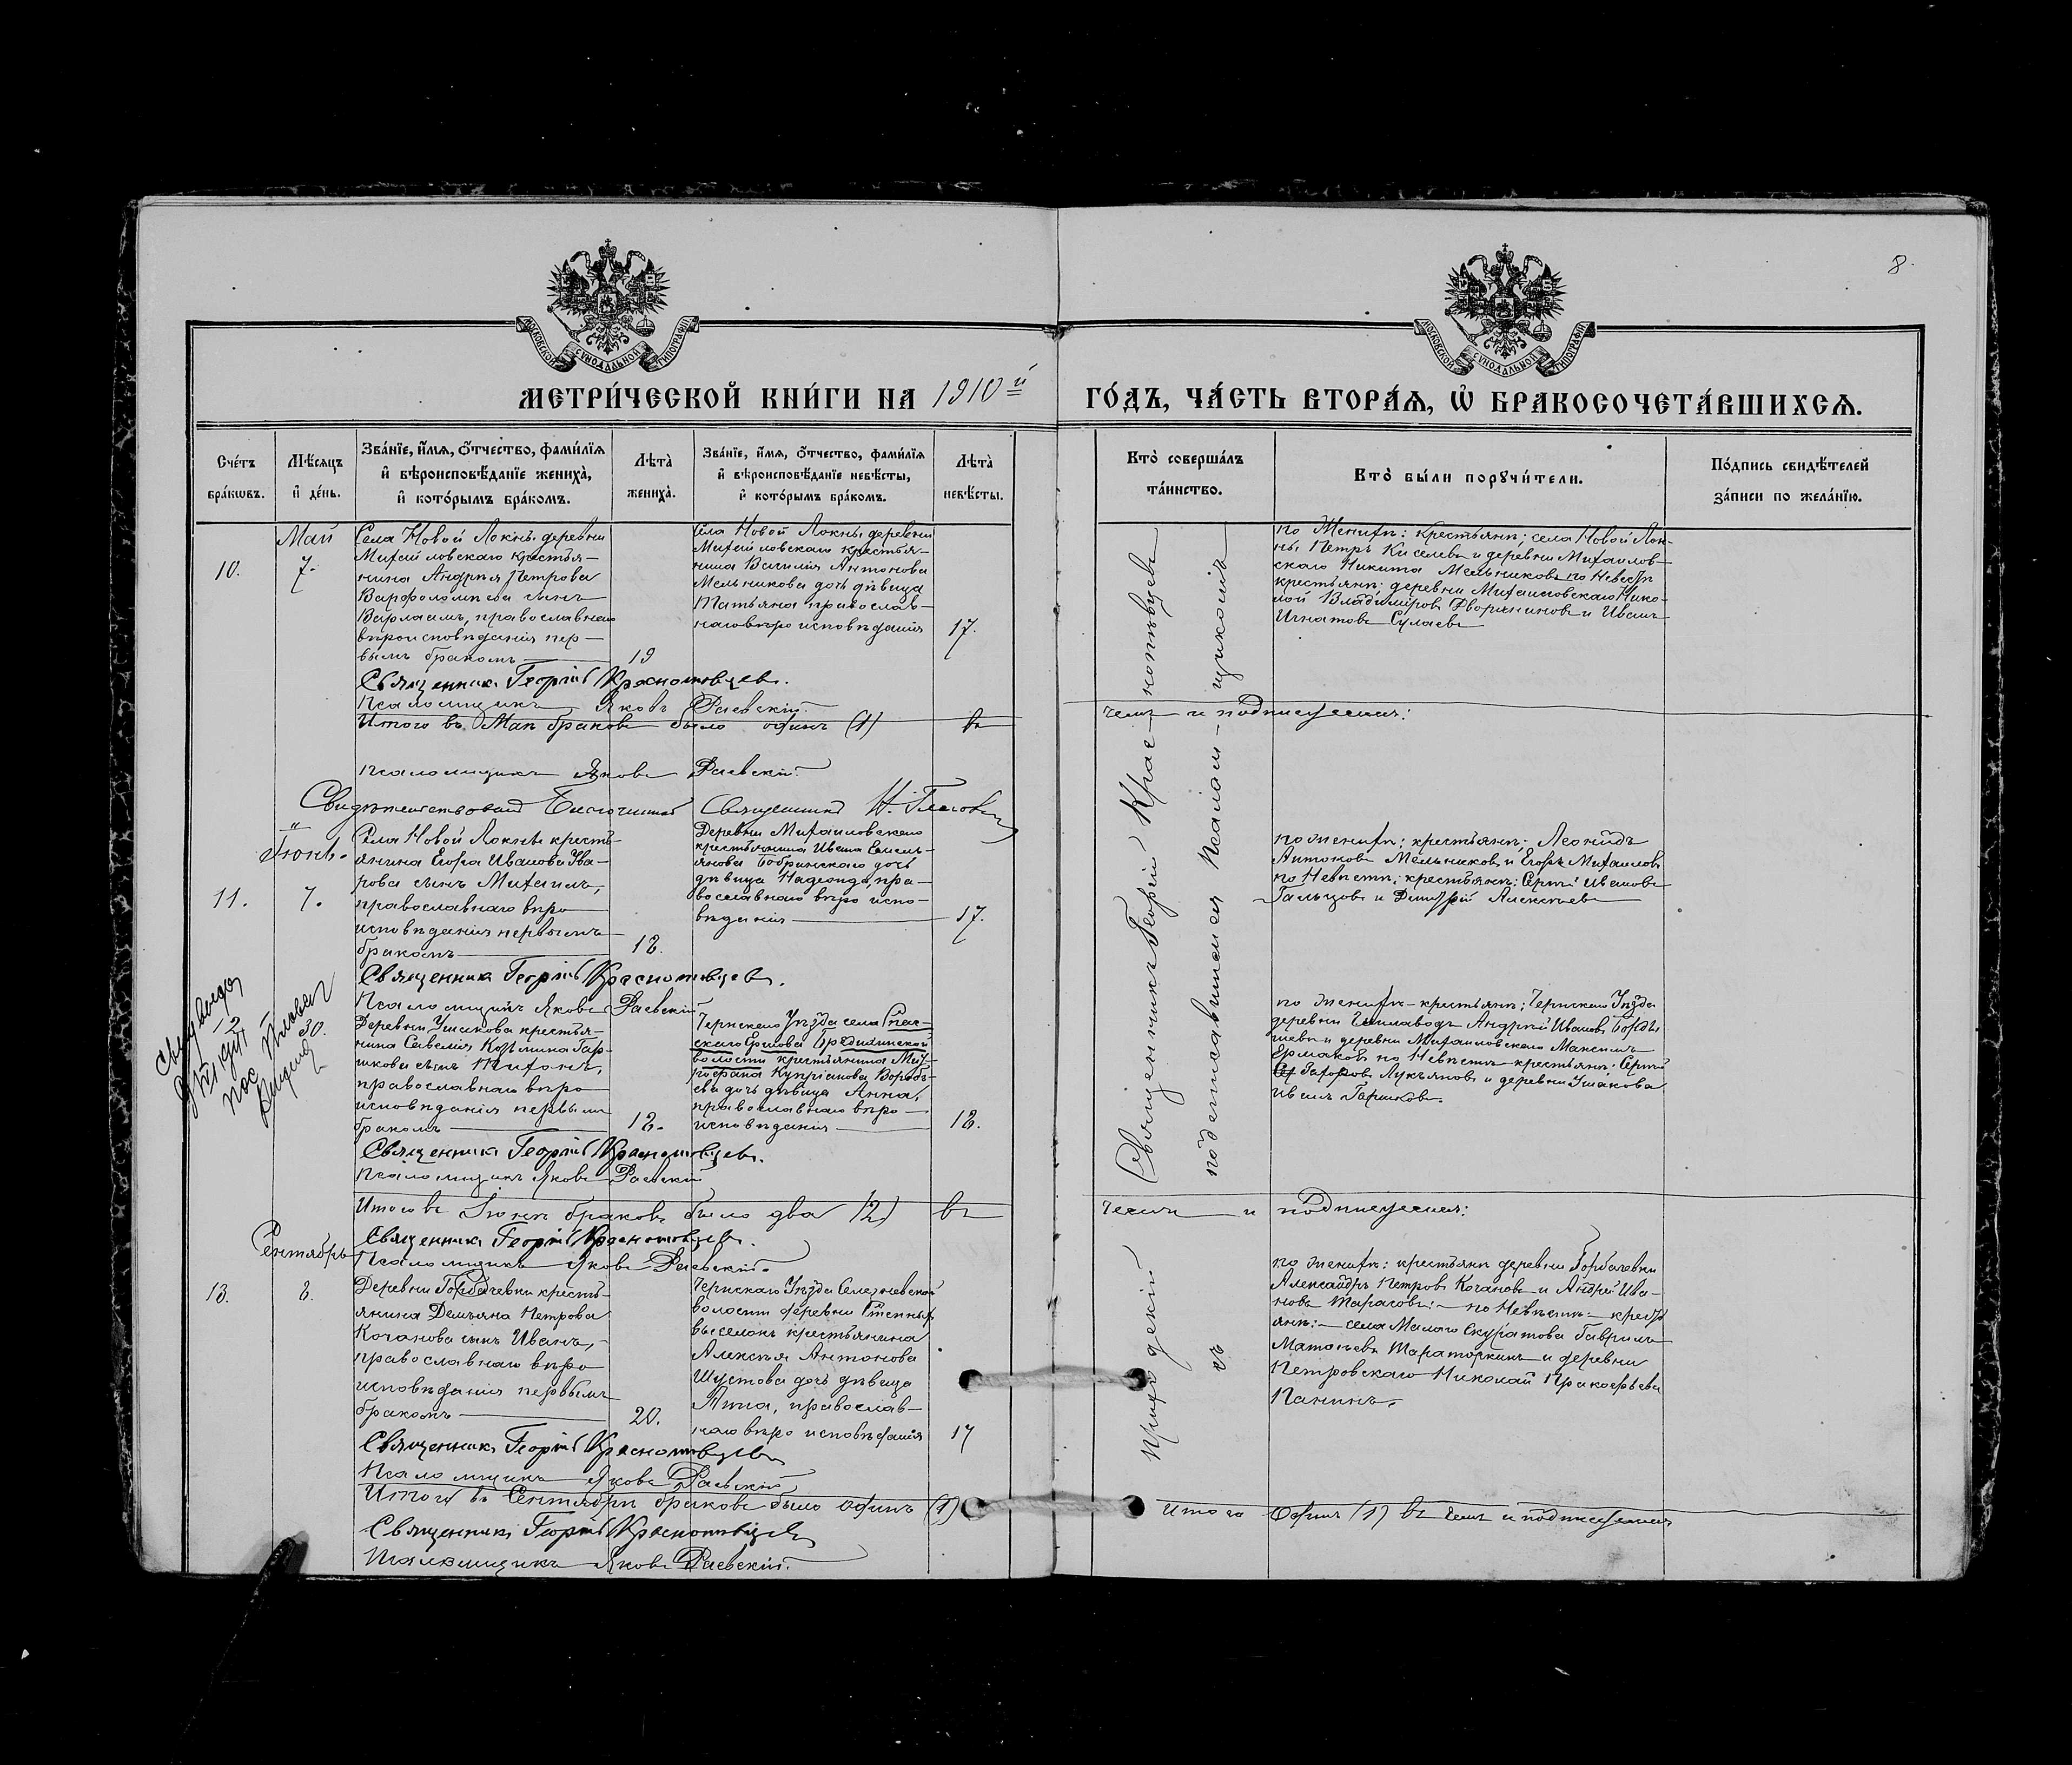 8.
МОСКОВСКОЙ СѴНОДАЛЬНОЙ ТИПОГРАФІИ
МОСКОВСКОЙ СѴНОДАЛЬНОЙ ТИПОГРАФІИ
МЕТРИ́ЧЕСКОЙ КНИ́ГИ НА 1910й ГО́ДЪ, ЧА́СТЬ ВТОРА́Я, Ѽ БРАКОСОЧЕТА́ВШИХСЯ.
Сче́тъ
бра́кѡвъ.
Мѣ́сяцъ
и҆ де́нь.
Зва́нїе, и҆́мя, ѻ҆́тчество, фами́лїя
и҆ вѣроисповѣ́данїе жениха̀,
и҆ кото́рымъ бра́комъ.
Лѣта̀
жениха̀.
Зва́нїе, и҆́мя, ѻ҆́тчество, фами́лїя
и҆ вѣроисповѣ́данїе невѣ́сты,
и҆ кото́рымъ бра́комъ.
Лѣта̀
невѣ́сты.
Кто̀ соверша́лъ
та́инство.
Кто̀ бы́ли порꙋчи́тели.
По́дпись свидѣ́телей
за́писи по жела́нїю.
Май
10.
7.
Села Новой Локны деревни
Михайловскаго крестья-
нина Андрея Петрова
Варфоломеева сынъ
Варлаамъ, православнаго
вѣроисповѣданія пер-
вымъ бракомъ
19
Села Новой Локны деревни
Михайловскаго крестья-
нина Василія Антонова
Мельникова дочь дѣвица
Татьяна православ-
наго вѣроисповѣданія
17.
по Женихѣ: крестьяне; села Новой Лок-
ны Петръ Киселевъ и деревни Михайлов-
скаго Никита Мельниковъ по Невестѣ
крестьяне: деревни Михайловскаго Нико-
лай Владиміровъ Дворяниновъ и Иванъ
Игнатовъ Сулаевъ
Священникъ Георгій Краснопѣвцевъ.
Псаломщикъ Яковъ Раевскій.
Итого въ Маѣ браковъ было одинъ (1) въ
чемъ и подписуемся:
Псаломщикъ Яковъ Раевскій.
Свидѣтельствовалъ Благочинный Священникъ Н. Глаголевъ
Іюнь.
11.
7.
Села Новой Локны кресть-
янина Егора Иванова Ува-
рова сынъ Михаилъ,
православнаго вѣро
исповѣданія первымъ
бракомъ
18.
Деревни Михайловскаго
крестьянина Ивана Емель-
янова Бобринскаго дочь
дѣвица Надежда, пра-
вославнаго вѣро испо-
вѣданія
17.
по женихѣ: крестьяне; Леонидъ
Антоновъ Мельниковъ и Егоръ Михаиловъ
по Невѣстѣ: крестьяне: Сергѣй Ивановъ
Гальцовъ и Димитрій Алексѣевъ
Священникъ Георгій Краснопѣвцевъ.
Псаломщикъ Яковъ Раевскій
12
30.
Деревни Ушакова крестья-
нина Савелія Козьмина Гор-
шкова сынъ Тихонъ,
православнаго вѣро
исповѣданія первымъ
бракомъ
18.
Чернскаго Уѣзда села Спас-
скаго Ершова Бредихинской
волости крестьянина Мит-
рофана Купріянова Воробь-
ева дочь дѣвица Анна,
православнаго вѣро
исповѣданія
18.
по женихѣ - крестьяне: Чернскаго Уѣзда
Андрей Ивановъ
и деревни Михайловскаго Максимъ
Ермаковъ по Невѣстѣ - крестьяне: Сергѣй
Лукьяновъ и деревни Ушакова
Иванъ Горшковъ.
Священникъ Георгій Краснопѣвцевъ.
Псаломщикъ Яковъ Раевскій
Итого въ Іюнѣ браковъ было два (2) въ
чемъ и подписуемся:
Священникъ Георгій Краснопѣвцевъ.
Псаломщикъ Яковъ Раевскій.
Сентябрь
13.
8.
Деревни Горбачевки кресть-
янина Демьяна Петрова
Коганова сынъ Иванъ,
православнаго вѣро
исповѣданія первымъ
бракомъ
20.
Чернскаго Уѣзда Селезневской
волости деревни Степныхъ
выселокъ крестьянина
Алексѣя Антонова
Шустова дочь дѣвица
Анна, православ-
наго вѣро исповѣданія
17
по женихѣ: крестьяне деревни Горбачевки
Александръ Петровъ Когановъ и Андрей Ива-
новъ Тарасовъ: - по Невѣстѣ: крестья
яне: - села Малаго Скуратова Гаврилъ
Матвѣевъ и деревни
Петровскаго Николай Прокофьевъ
Панинъ.
Священникъ Георгій Краснопѣвцевъ
Псаломщикъ Яковъ Раевскій
Итого въ Сентябрѣ браковъ было одинъ (1)
Итого Одинъ (1) въ чемъ и подписуемся
Священникъ Георгій Краснопѣвцевъ
Псаломщикъ Яковъ Раевскій.
Приходскій Священникъ Георгій Краснопѣвцевъ
съ подписавшимся псаломщикомъ